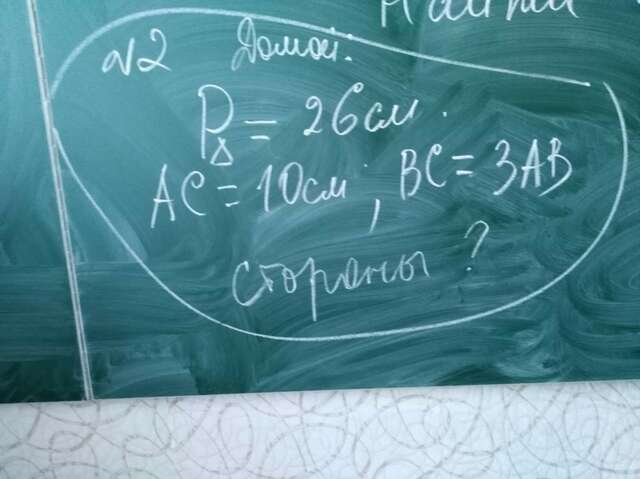 Найти
№2 Домой:
P△ = 26 см.
AC = 10 см, BC = 3AB
стороны ?